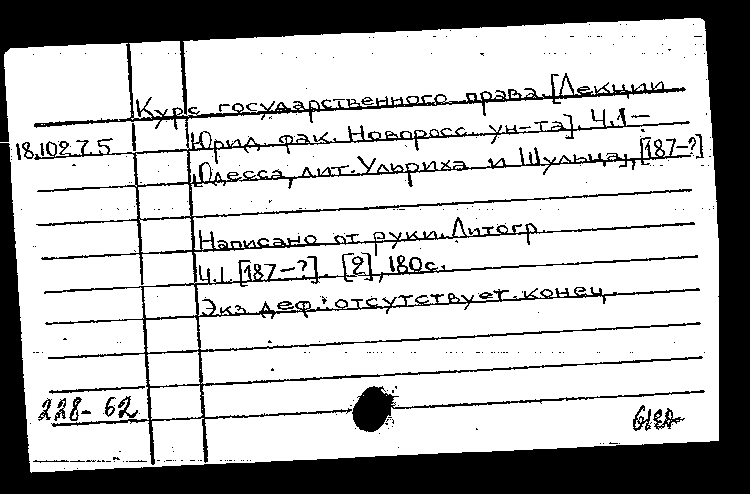 Курс государственного права. [Лекции
18.102.7.5 Юрид. фак. Новоросс. ун-та]. Ч.1-
Одесса, лит. Ульриха и Шульца, [187-?]
Написано от руки. Литогр.
Ч.1. [187-?]. [2], 180с.
Экз. деф.: отсутствует конец.
228-62